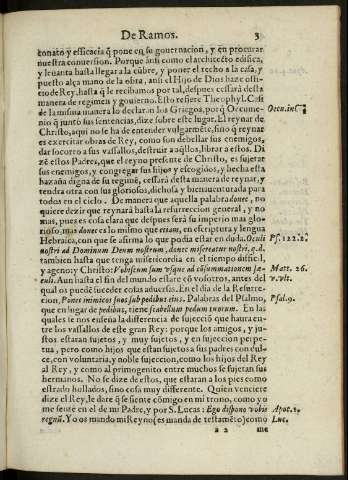 De Ramos. 3
conato y efficacia q̃ pone en su gouernacion, y en procurar
nuestra conuersion. Porque ansi como el architecto edifica,
y leuanta hasta llegar a la cũbre, y poner el techo a la casa, y
puesto alça mano de la obra, ansi el Hijo de Dios haze offi-
cio de Rey, hasta q̃ le recibamos por tal, despues cessará desta
manera de regimen y gouierno. Esto refiere Theophyl. Casi
de la misma manera lo declaran los Griegos, porq̃ Occumenio
q̃ juntó sus sentencias, dize sobre este lugar. El reynar de
Christo, aqui no se ha de entender vulgarmẽte, sino q̃ reynar
es exercitar obras de Rey, como son debellar sus enemigos,
dar socorro a sus vassallos, destruir a aq̃llos, librar a estos. Di
zẽ estos Padres, que el reyno presente de Christo, es sujetar
sus enemigos, y congregar sus hijos y escogidos, y hecha esta
hazaña digna de su regimẽ, cessará desta manera de reynar, y
tendra otra con sus gloriosos, dichosa y bienauenturada para
todos en el cielo. De manera que aquella palabra donec, no
quiere dezir que reynará hasta la resurreccion general, y no
mas, pues es cosa clara que despues será su imperio mas glo-
rioso, mas donec es lo mismo que etiam, en escriptura y lengua
Hebraica, con que se afirma lo que podia estar en duda. Oculi
nostri ad Dominum Deum nostrum, donec misereatur nostri, q.d.
tambien hasta que tenga misericordia en el tiempo difficil,
y ageno; y Christo: Vobiscum sum vsque ad cõsummationem sæ-
culi. Aun hasta el fin del mundo estare cõ vosotros, antes del
qual os puedẽ suceder cosas aduersas. En el dia de la Resurre-
cion, Pones inimicos tuos sub pedibus eius. Palabras del Psalmo,
que en lugar de pedibus, tiene scabellum pedum tuorum. En las
quales se nos enseña la differencia de sujeciõ que haura en-
tre los vassallos de este gran Rey: porque los amigos, y ju-
stos estaran sujetos, y muy sujetos, y en sujeccion perpe-
tua, pero como hijos que estan sujetos a sus padres con dul-
ce, con voluntaria, y noble sujeccion, como los hijos del Rey
al Rey, y como al primogenito entre muchos se sujetan sus
hermanos. No se dize destos, que estaran a los pies como
estrado hollados, sino cosa muy differente. Quien venciere
dize el Rey, le dare q̃ se siente cõmigo en mi trono, como yo
me sente en el de mi Padre, y por S. Lucas: Ego dispono vobis
regnũ. Yo os mando mi Reyno (es manda de testamẽto) como
a 2 me
Psf. 122.2.
Matt. 26.
Psal. 9.
Apoc. 2.
Luc.